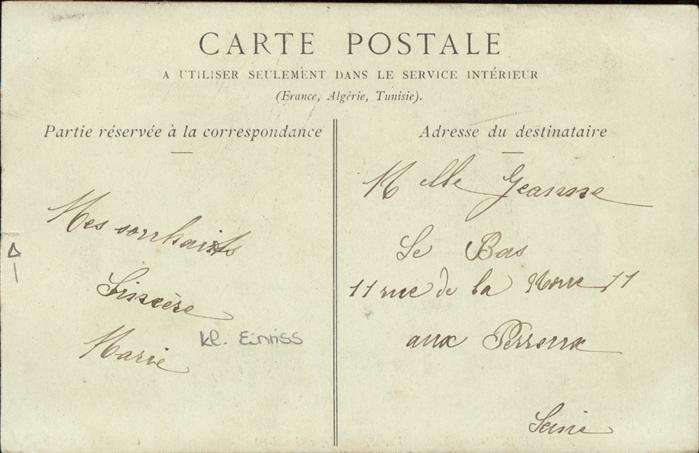 CARTE POSTALE
A UTILISER SEULEMENT DANS LE SERVICE INTÉRIEUR
(France, Algérie, Tunisie).
Partie réservée à la correspondance
Mes souhaits
Sincère
Marie
kl. Einriss
Adresse du destinataire
Mlle Jeanne
Le Bas
11 rue de la 11
aux Perreux
Seine